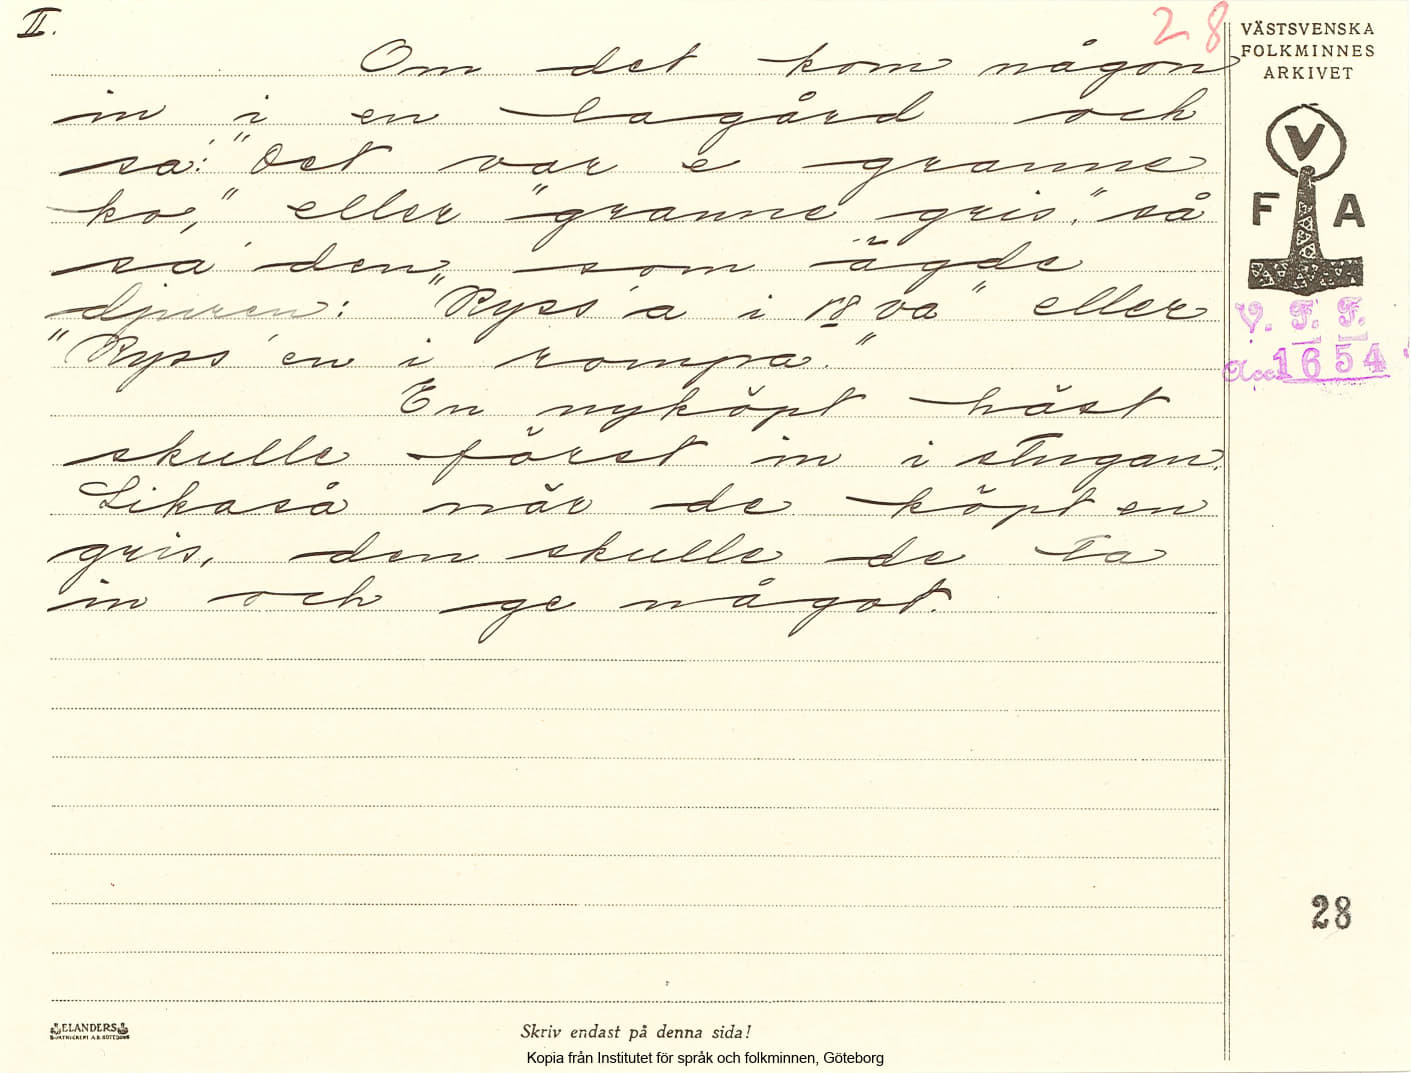 II.
28
VÄSTSVENSKA
FOLKMINNES
ARKIVET
V
F A
V. F. F.
Acc. 1654
Om det kom någon
in i en lagård och
sa': "Det var e granne
ko," eller "granne gris", så
sa' den, som ägde
djuren: "Kyss' a i röva" eller
"Kyss' en i rompa."
En nyköpt häst
skulle först in i stugan.
Likaså när de köpt en
gris, den skulle de ta
in och ge något.
28
ELANDERS
BOKTRYCKERI A.B. GÖTEBORG
Skriv endast på denna sida!
Kopia från Institutet för språk och folkminnen, Göteborg